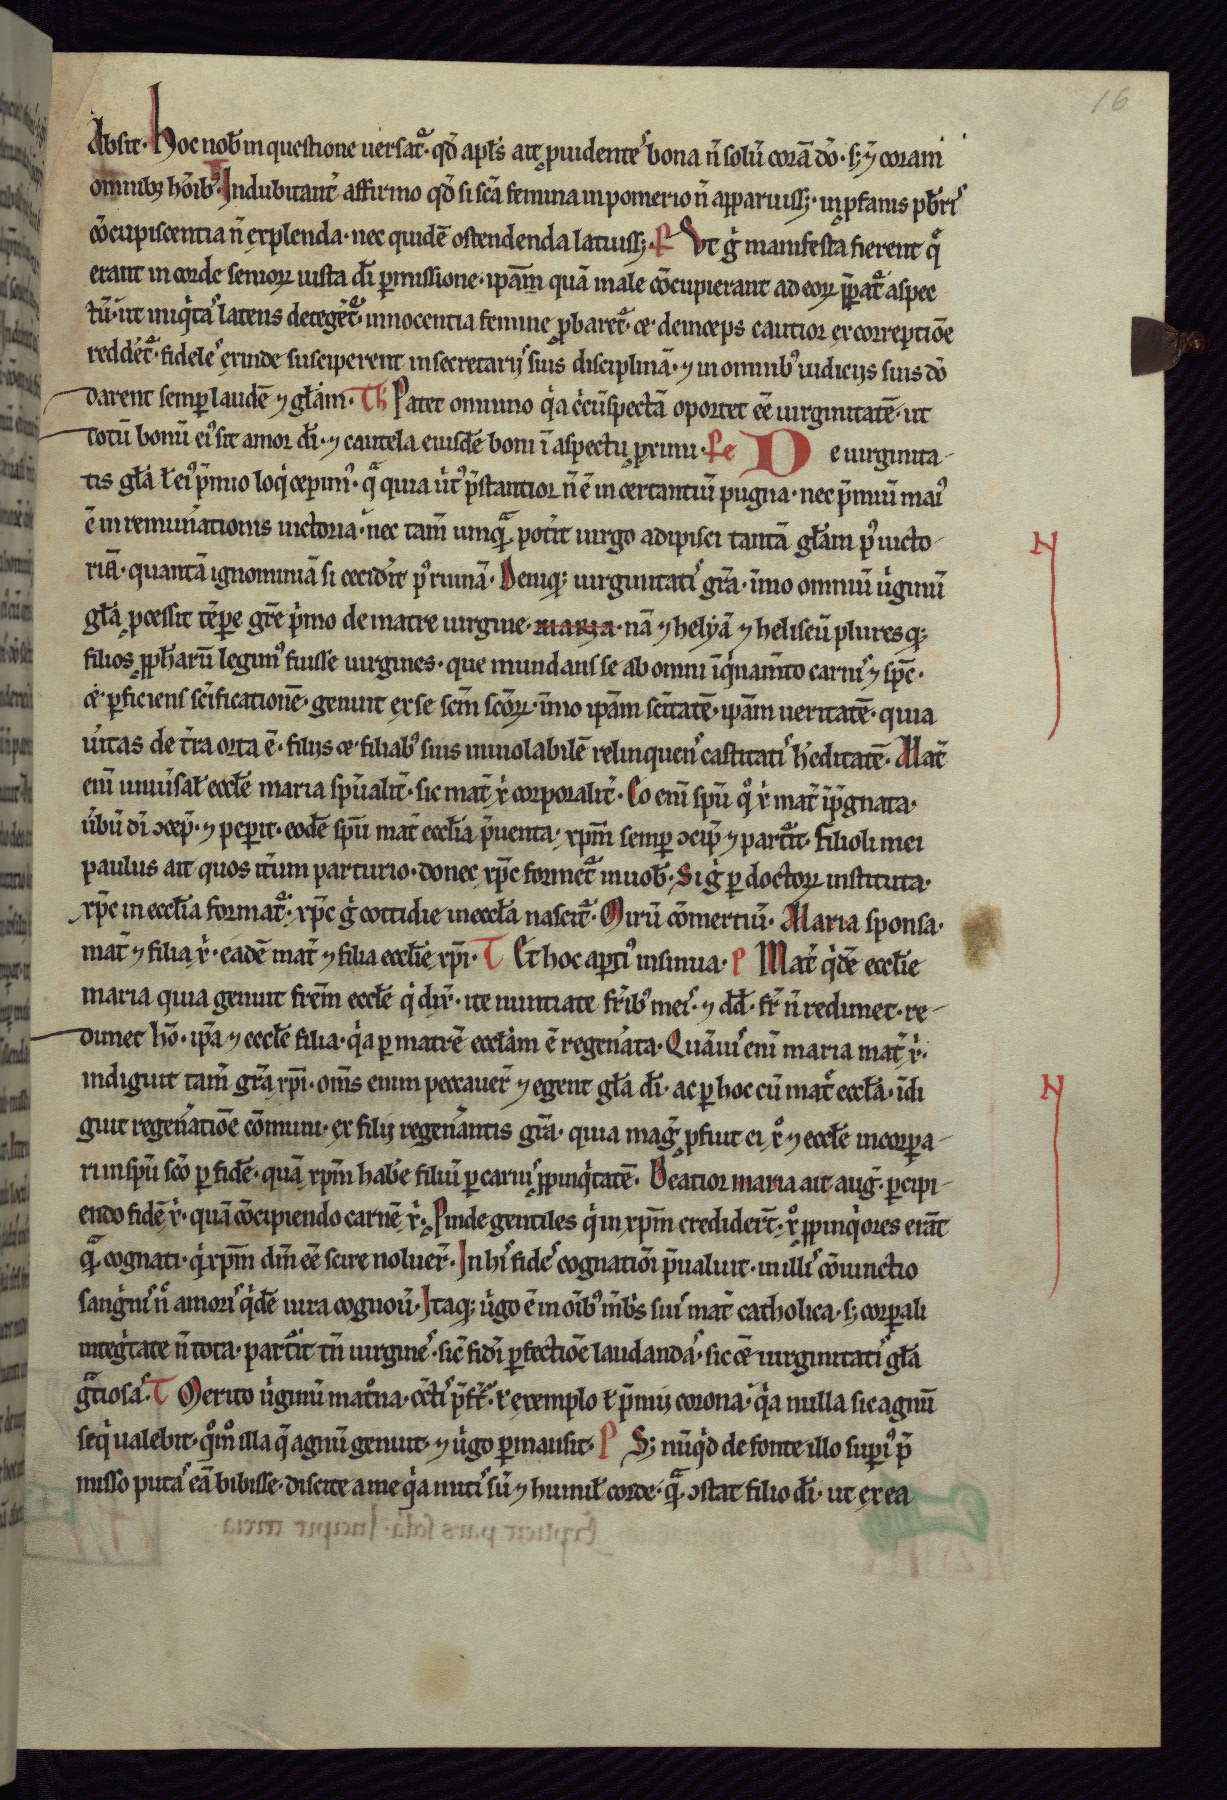 16
Absit. hoc nob̄ in questione uersat᷑. qd̄ apl̄s ait ꝓuidentes bona n̄ solū corā dō. sꝫ ⁊ coram
omnibꝫ hōibꝰ. T Indubitant̄ affirmo qd̄ si sc̄a femina in pomerio n̄ apparuissꝫ. in ꝓfanis pb̄ris
cōcupiscentia n̄ explenda. nec quidē ostendenda latuissꝫ. P Vt g̊ manifesta fierent q̄
erant in corde senioꝝ iusta dī ꝑmissione. ip̄am quā male cōcupierant ad eoꝝ aspec
tū. ut iniq̇tas latens deteget᷑. innocentia femine ꝓbaret᷑. ce deinceps cautior ex correptiōe
reddet᷑. fideles exinde susciperent in secretarij suis disciplinā. ⁊ in omnibꝰ iudicijs suis dō
darent semꝑ laudē ⁊ gl̄am. Th Patet omnino q̇a c̄cūspectā oportet eē uirginitatē. ut
totū bonū eiꝰ sit amor dī. ⁊ cautela eiusdē boni ī aspectu ꝓximi. Pe De uirginita-
tis gl̄a ł eiꝰ p̄mio loq̇ cepimꝰ. q̄ quia ūt᷑ p̄stantior n̄ ē in certantiū pugna. nec p̄miū maiꝰ
ē in remun̄ationis uictoria. nec tam̄ umq̄ pot̄it uirgo adipisci tantā gl̄am pꝰ uicto-
riā. quantā ignominiā si cecid̄it pꝰ ruinā. Deniqꝫ uirginitatis gr̄a. īmo omniū ūginū
gl̄a ꝓcessit tēpe gr̄e p̄mo de matre uirgine. maria. nā ⁊ helyā ⁊ heliseū pluresqꝫ
filios ꝓphaꝝ legimꝰ fuisse uirgines. que mundans se ab omni īq̇nam̄to carnis ⁊ sp̄c.
ce ꝑficiens sc̄ificationē. genuit ex se scm̄ sc̄oꝝ. īmo ip̄am sc̄itatē. ip̄am ueritatē. quia
ūitas de t̄ra orta ē. filijs ce filiabꝰ suis inuiolabilē relinquens castitatis h̄editatē. Mat̄
eni unīusał eccl̄e maria sp̄ualit̄. sic mat̄ x̄ corporalit̄. Eo eni sp̄u qͦ x̄ mat̄ īp̄gnata.
ūbū dī ↄcep̄. ⁊ peꝑit. eodē sp̄u mat̄ eccl̄ia p̄uenta. xp̄m semꝑ ↄcip̄ ⁊ partīt. Filioli mei
paulus ait quos it̄um parturio. donec xp̄c formet᷑ in uob̄. Si g̊ ꝑ doctoꝝ instituta.
xp̄c in eccl̄ia format᷑. xp̄c g̊ cottidie in eccl̄a nascit᷑. Mirū cōmertiū. Maria sponsa.
mat̄ ⁊ filia x̄. eadē mat̄ ⁊ filia eccl̄ie xp̄i. T Et hoc aꝑtiꝰ insinua. P Mat̄ q̇dē eccl̄ie
maria quia genuit frēm eccl̄e q̇ dix̄. ite nuntiate fr̄ibꝰ meis. ⁊ dd̄. fr̄ n̄ redimet. re-
dimet hō. ip̄a ⁊ eccl̄e filia. q̇a ꝑ matrē eccl̄am ē regen̄ata. Quāuis eni maria mat̄ x̄.
indiguit tam̄ gr̄a xp̄i. om̄s enim peccauer̄ ⁊ egent gl̄a dī. ac ꝑ hoc cū mat̄ eccl̄a. īdi
guit regen̄atiōe cōmuni. ex filij regen̄antis gr̄a. quia mag̊ ꝓfuit ei x̄ ⁊ eccl̄e incorpa-
ri in sp̄u sc̄o ꝑ fidē. quā xp̄m hab̄e filiū ꝑ carnis ꝓpinq̇tatē. Beatior maria ait aug̊. ꝑcipi-
endo fidē x̄. quā cōcipiendo carnē x̄. P inde gentiles q̇ in xp̄m credider̄t. x̄ ꝓpinq̇ores erāt
q̄ cognati. q̇ xp̄m dm̄ eē scire noluer̄. In his fides cognatiōi p̄ualuit. in illis cōiunctio
sang̊nis n̄ amoris q̇dē iura cognoū. Itaqꝫ ūgo ē in oībꝰ mb̄s suis mat̄ catholica. sꝫ corꝑali
integ̊tate n̄ tota. partīt tn̄ uirgines. sic̄ fidī ꝑfectiōe laudandas. sic cē uirginitatis gl̄a
g̊tiosas. T Merito ūginū mat̄na. exemplo ł p̄mij corona. q̇a nulla sic agnū
seq̇ ualebit. qͦm illa q̄ agnū genuit. ⁊ ūgo ꝑmansit. P Sꝫ nūq̇d de fonte illo supiꝰ p̄
misso putas eā bibisse. discite a me q̇a mitis sū ⁊ humił corde. q̄ ↄstat filio dī. ut ex ea
N
N